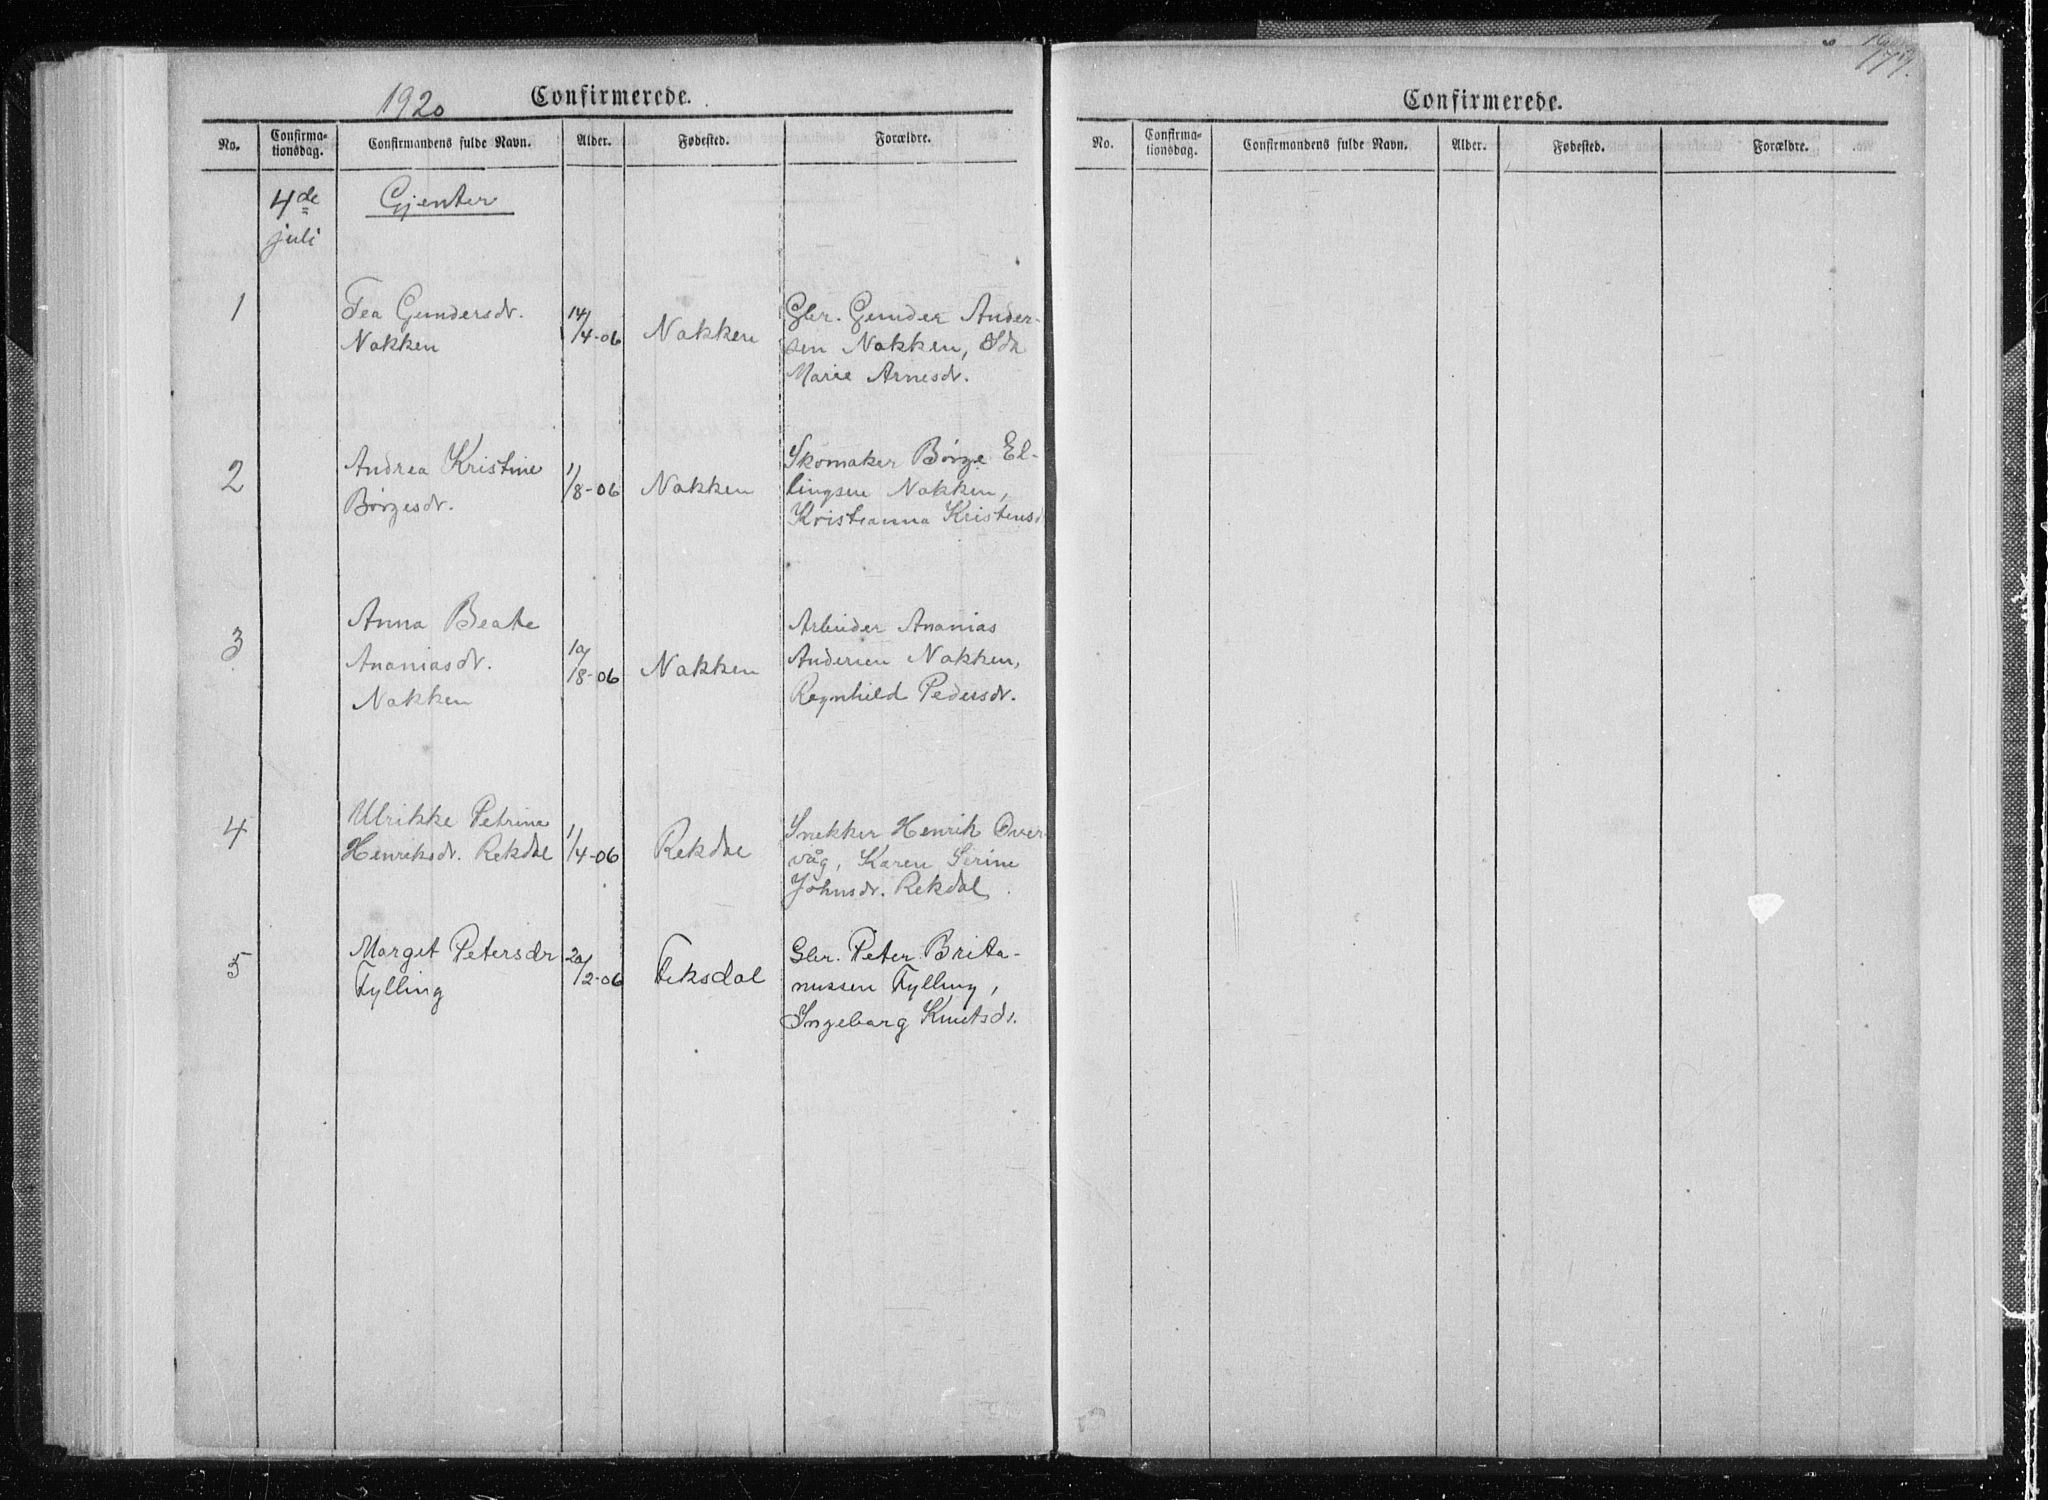 1920
Confirmerede.
No.
Confirma-
tionsdag.
Confirmandens fulde Navn.
Alder.
Fødested.
Forældre.
4de
juli
Gjenter
1
Tea Gundersdr.
Nakken
14/4-06
Nakken
Gbr. Gunder Ander-
sen Nakken, Ida
Marie Arnesdr.
2
Andrea Kristine
Børgesdr.
1/8-06
Nakken
Skomaker Børge El-
lingsen Nakken,
Kristianna Kristensd
3
Anna Beate
Ananiasdr.
Nakken
10/8-06
Nakken
Arbeider Ananias
Andersen Nakken,
Ragnhild Pedersdr.
4
Ulrikke Petrine
Henriksdr. Rekdal
1/4-06
Rekdal
Snekker Henrik Over-
våg, Karen Serine
Johnsdr. Rekdal
5
Marget Petersdr
Fylling
20/2-06
Teksdal
Gbr. Peter Brita-
nussen Fylling,
Ingeborg Knutsdr.
Confirmerede.
No.
Confirma-
tionsdag.
Confirmandens fulde Navn.
Alder.
Fødested.
Forældre.